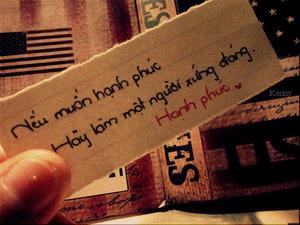 Kenny
Nếu muốn hạnh phúc
Hãy làm một người xứng đáng.
Hạnh phúc